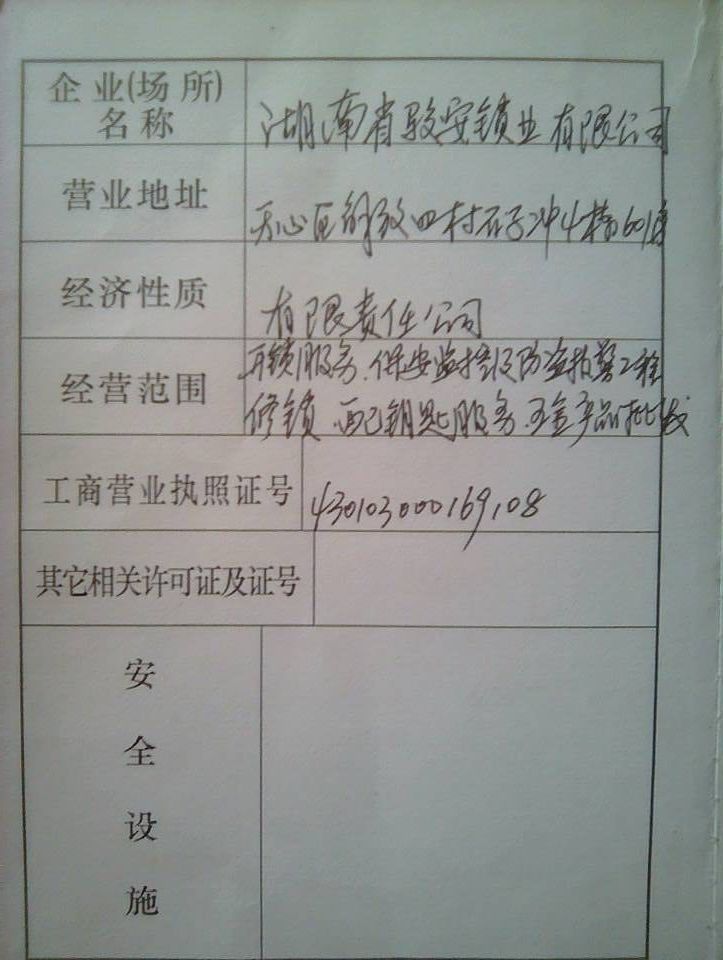 企业(场所)
名称
湖南省骏安锁业有限公司
营业地址
天心区解放四村石子冲4栋601房
经济性质
有限责任公司
经营范围
开锁服务.保安监控及防盗报警工程
修锁.配钥匙服务.五金产品批发
工商营业执照证号
430103000169108
其它相关许可证及证号
安
全
设
施